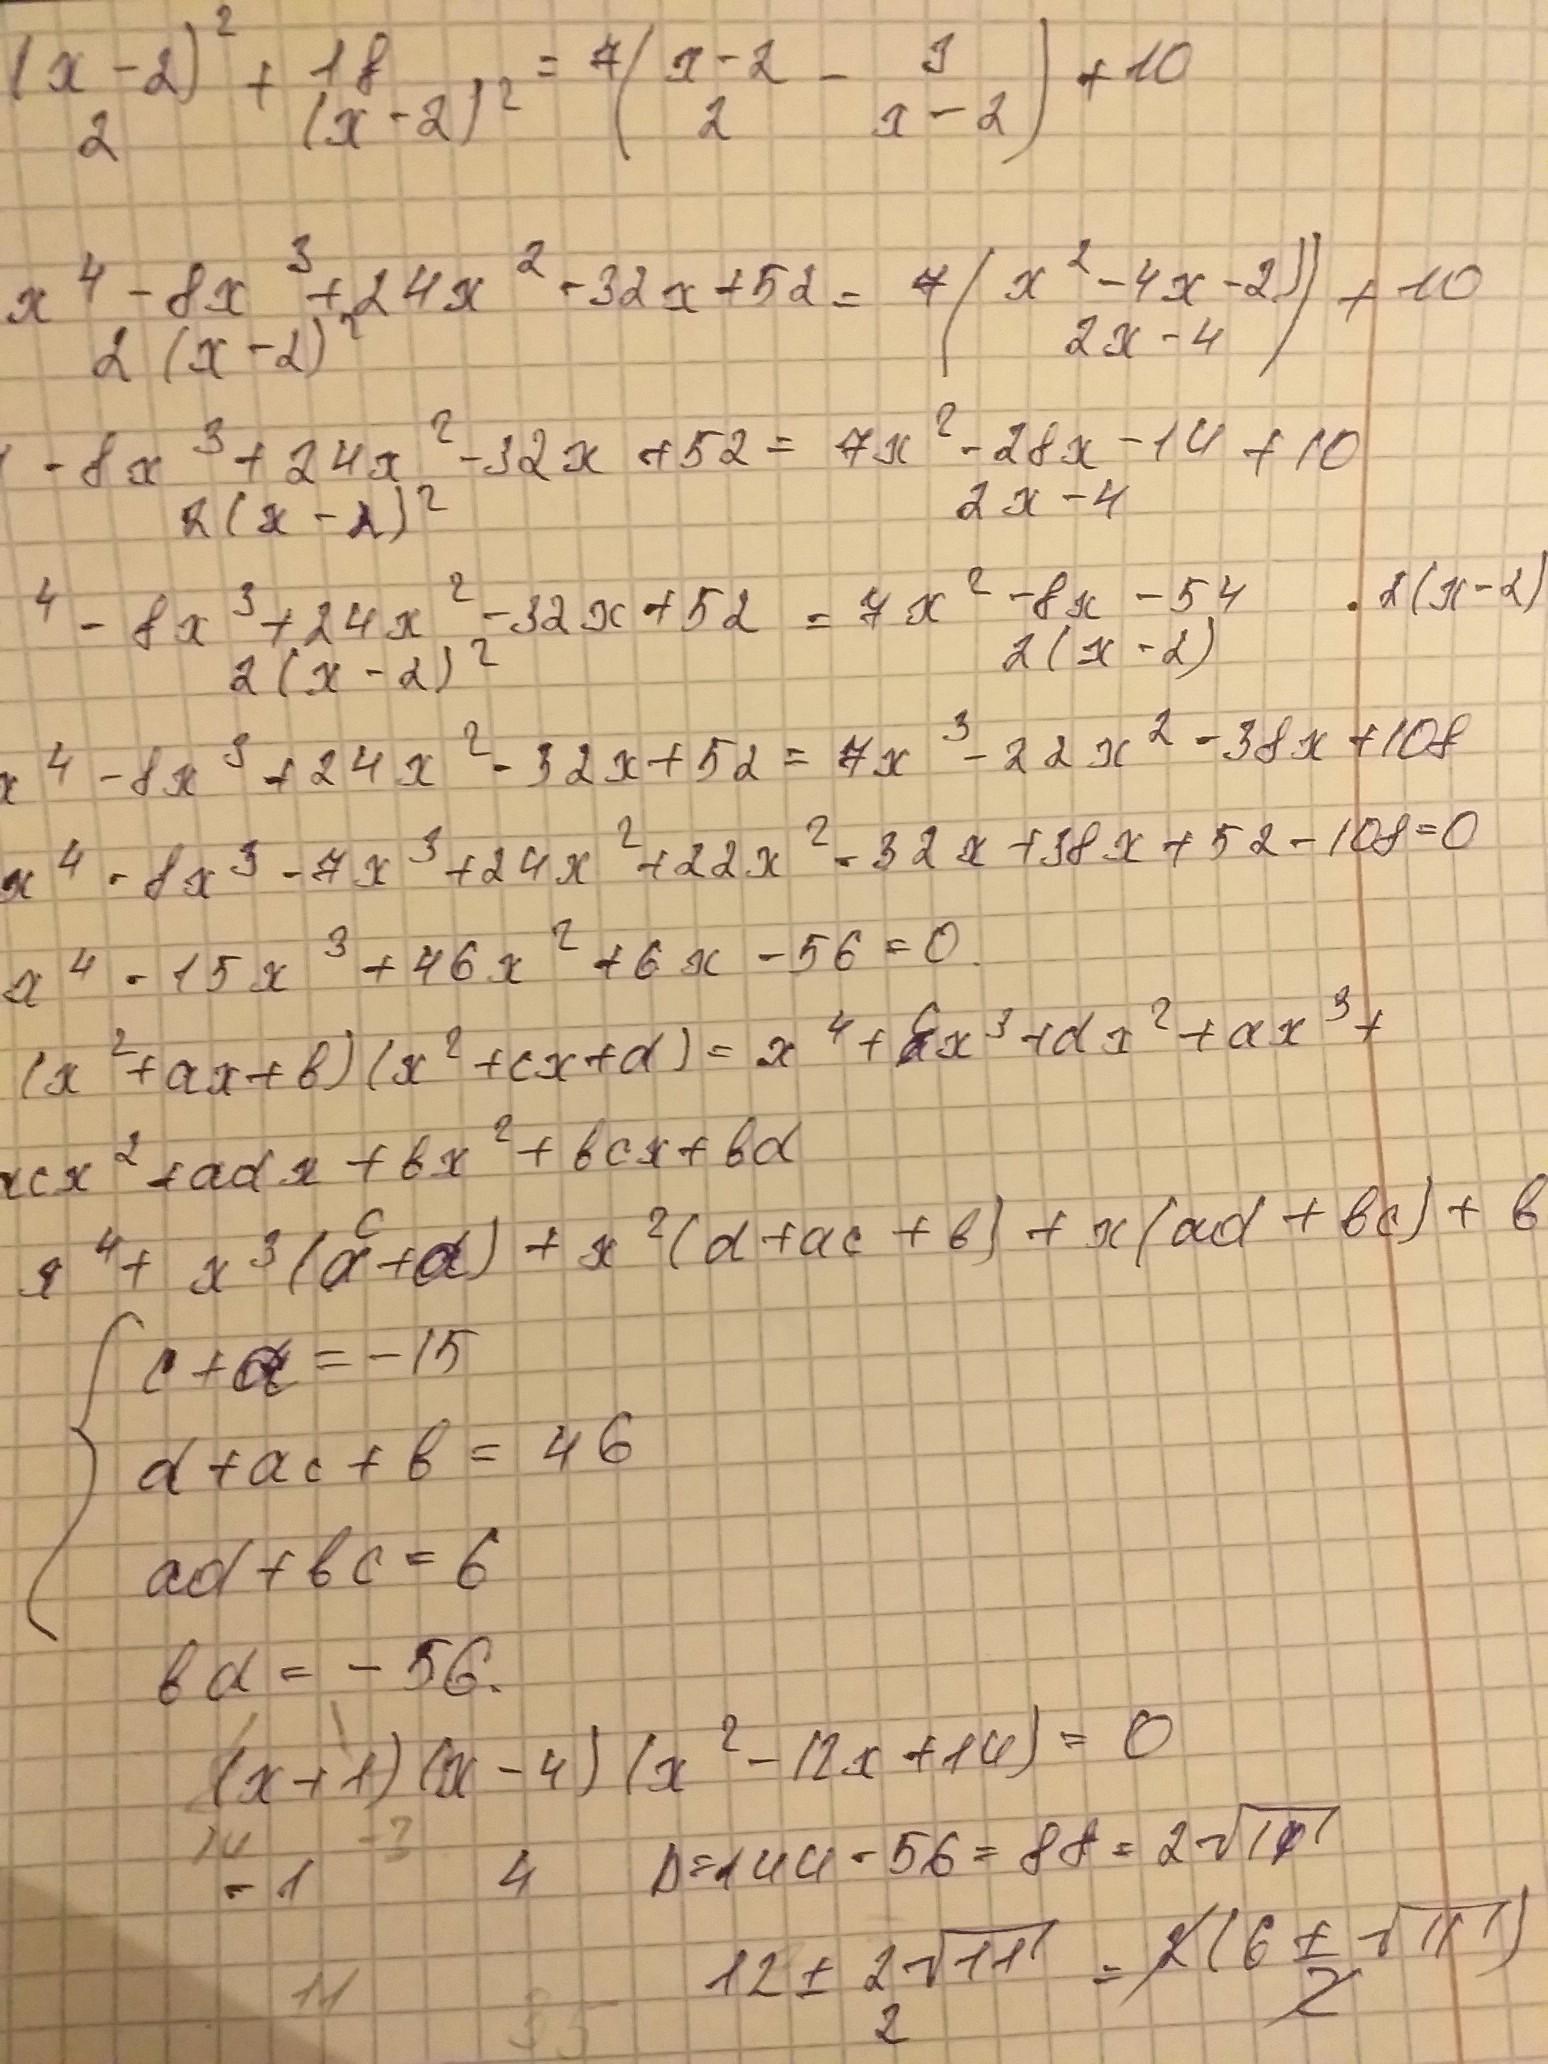 (x-2)² + 18 = 7(x-2 - 3) + 10
2 (x-2)² 2 x-2
x⁴-8x³+24x²-32x+52 = 7(x²-4x-2)) + 10
2(x-2)² 2x-4
-8x³+24x²-32x+52 = 7x²-28x-14+10
2(x-2)² 2x-4
⁴-8x³+24x²-32x+52 = 7x²-8x-54 · 2(x-2)
2(x-2)² 2(x-2)
x⁴-8x³+24x²-32x+52 = 7x³-22x²-38x+108
x⁴-8x³-7x³+24x²+22x²-32x+38x+52-108=0
x⁴-15x³+46x²+6x-56=0.
(x²+ax+b)(x²+cx+d) = x⁴+cx³+dx²+ax³+
acx²+adx+bx²+bcx+bd
x⁴+x³(c+a)+x²(d+ac+b)+x(ad+bc)+b
c+a=-15
d+ac+b=46
ad+bc=6
bd=-56.
(x+1)(x-4)(x²-12x+14)=0
-1 4 D=144-56=88=2√11
12±2√11 = 2(6±√11)
2 2